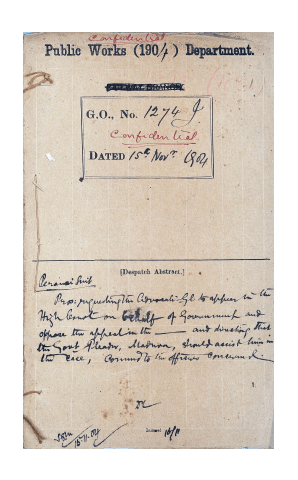 Confidential
Public Works (1904) Department.
G.O., No. 1274 I
Confidential
DATED 15th Novr 1904
[Despatch Abstract.]
Peranai Suit
Pro: requesting the Advocate Gl to appear in the
High Court on behalf of Government and
oppose the appeal in the — and directing that
the Govt Pleader, Madura, should assist him in
the case, Commd to the officers concerned
15.11.04
Issued 16/11